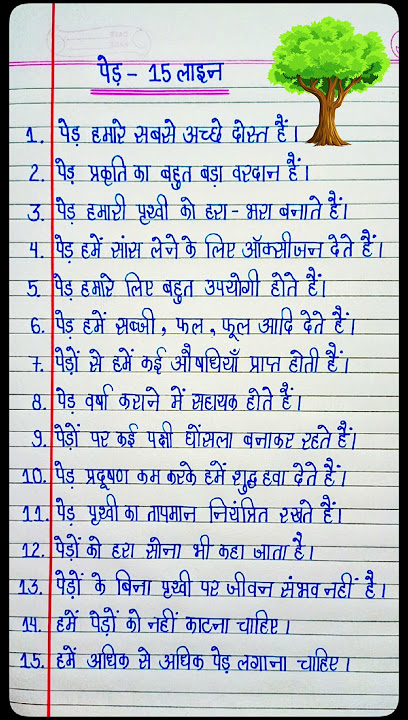 पेड़ - 15 लाइन
1. पेड़ हमारे सबसे अच्छे दोस्त हैं।
2. पेड़ प्रकृति का बहुत बड़ा वरदान हैं।
3. पेड़ हमारी पृथ्वी को हरा - भरा बनाते हैं।
4. पेड़ हमें सांस लेने के लिए ऑक्सीजन देते हैं।
5. पेड़ हमारे लिए बहुत उपयोगी होते हैं।
6. पेड़ हमें सब्जी, फल, फूल आदि देते हैं।
7. पेड़ों से हमें कई औषधियाँ प्राप्त होती हैं।
8. पेड़ वर्षा कराने में सहायक होते हैं।
9. पेड़ों पर कई पक्षी घोंसला बनाकर रहते हैं।
10. पेड़ प्रदूषण कम करके हमें शुद्ध हवा देते हैं।
11. पेड़ पृथ्वी का तापमान नियंत्रित रखते हैं।
12. पेड़ों को हरा सोना भी कहा जाता है।
13. पेड़ों के बिना पृथ्वी पर जीवन संभव नहीं है।
14. हमें पेड़ों को नहीं काटना चाहिए।
15. हमें अधिक से अधिक पेड़ लगाना चाहिए।